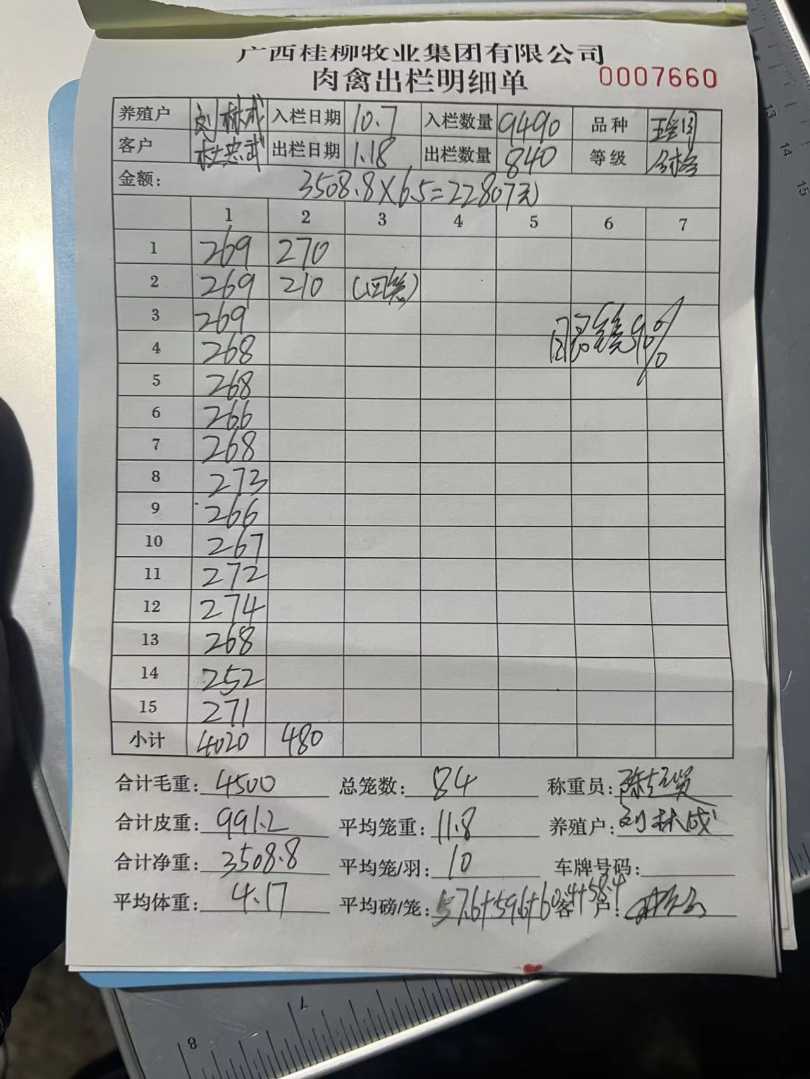 广西桂柳牧业集团有限公司
肉禽出栏明细单 0007660
养殖户 刘林成 入栏日期 10.7 入栏数量 9490 品种
客户 出栏日期 1.18 出栏数量 840 等级 合格
金额: 3508.8×6.5=22807元
1 2 3 4 5 6 7
1 269 270
2 269 210 (四笼)
3 269
4 268 90%
5 268
6 266
7 268
8 273
9 266
10 267
11 272
12 274
13 268
14 252
15 271
小计 4020 480
合计毛重: 4500 总笼数: 84 称重员:
合计皮重: 991.2 平均笼重: 11.8 养殖户: 刘林成
合计净重: 3508.8 平均笼/羽: 10 车牌号码:
平均体重: 4.17 平均磅/笼: 57.6+59.6+60.4+58.4 客户: